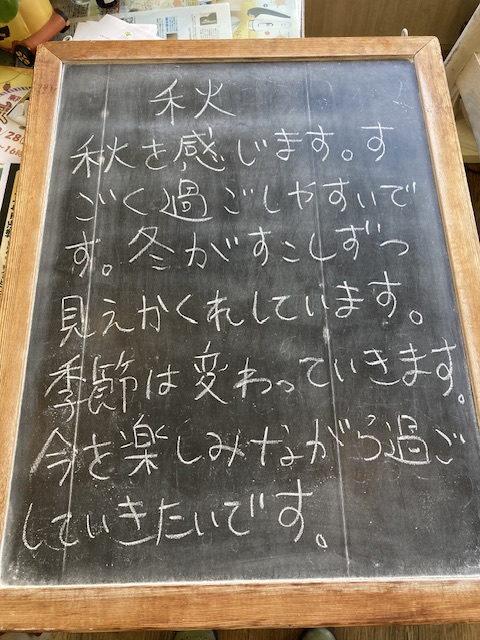 秋
秋を感じます。す
ごく過ごしやすいで
す。冬がすこしずつ
見えかくれしています。
季節は変わっていきます。
今を楽しみながら過ご
していきたいです。